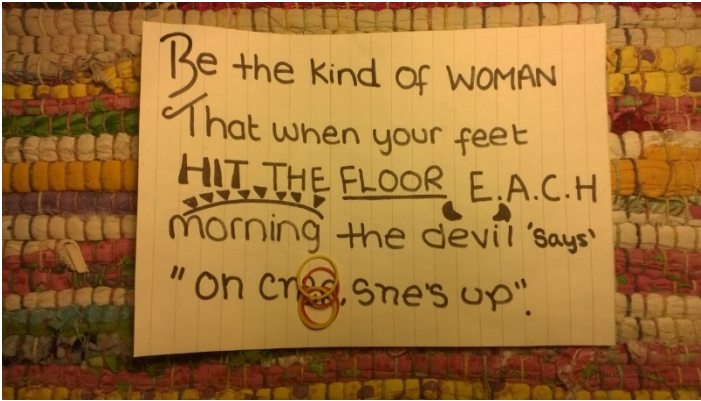 Be the kind of WOMAN
That when your feet
HIT THE FLOOR E.A.C.H
morning the devil 'says'
"on , sne's up".